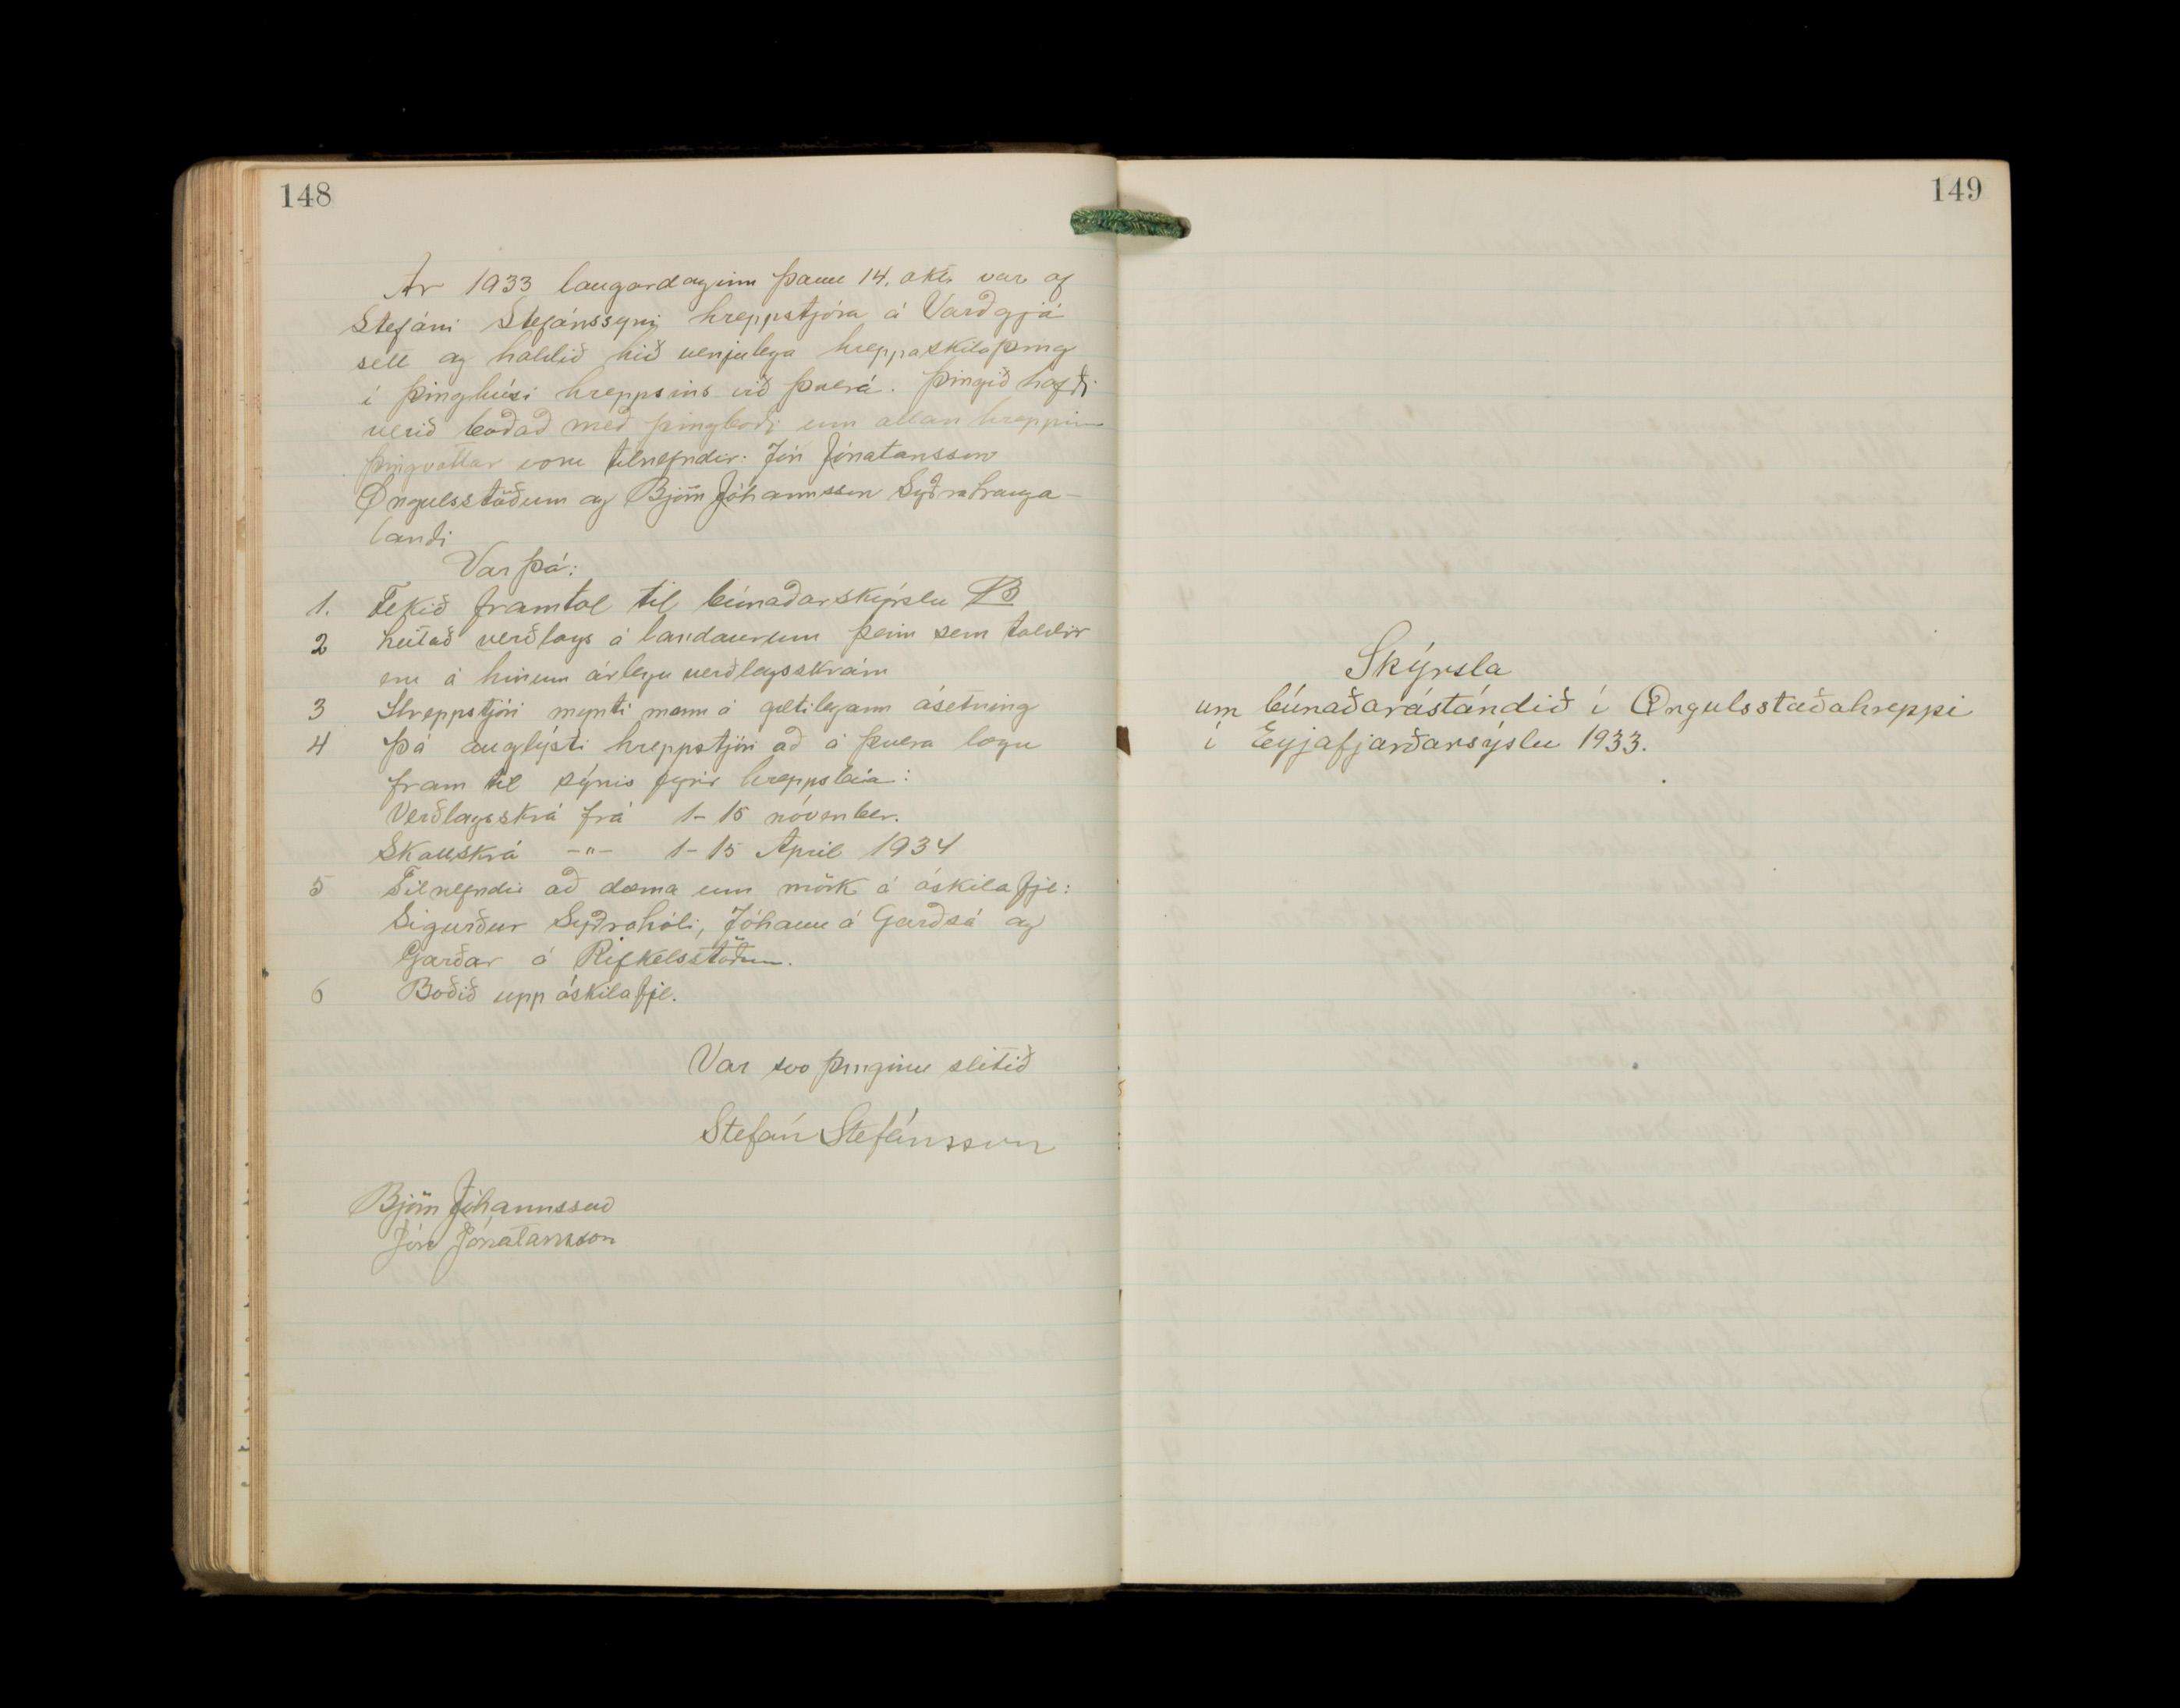 148
Ár 1933 laugardaginn þann 14. okt. var af
Stefáni Stefánssyni hreppstjóra á Varðgjá
sett og haldið hið venjulega hreppaskilaþing
í þinghúsi hreppsins við Þverá. Þingið hafði
verið boðað með þingboði um allan hreppinn
Þingvottar voru tilnefndir: Jón Jónatansson
Öngulsstöðum og Björn Jóhannsson Syðralauga-
landi
Var þá:
1. Tekið framtal til búnaðarskýrslu B
2 Leitað verðlags á landaurum þeim sem taldir
eru á hinum árlegu verðlagsskrám
3 Hreppstjóri mynti menn á gætilegann ásetning
4 Þá auglýsti hreppstjóri að á Þverá lægu
fram til sýnis fyrir hreppsbúa:
Verðlagsskrá frá 1-15 nóvember.
Skattskrá -"- 1-15 Apríl 1934
5 Tilnefndir að dæma um mörk á óskilafje:
Sigurður Syðrahóli, Jóhann á Garðsá og
Garðar á Rifkelsstöðum.
6 Boðið upp óskilafje.
Var svo þinginu slitið
Stefán Stefánsson
Björn Jóhannsson
Jón Jónatansson
149
Skýrsla
um búnaðarástándið í Öngulsstaðahreppi
í Eyjafjarðarsýslu 1933.